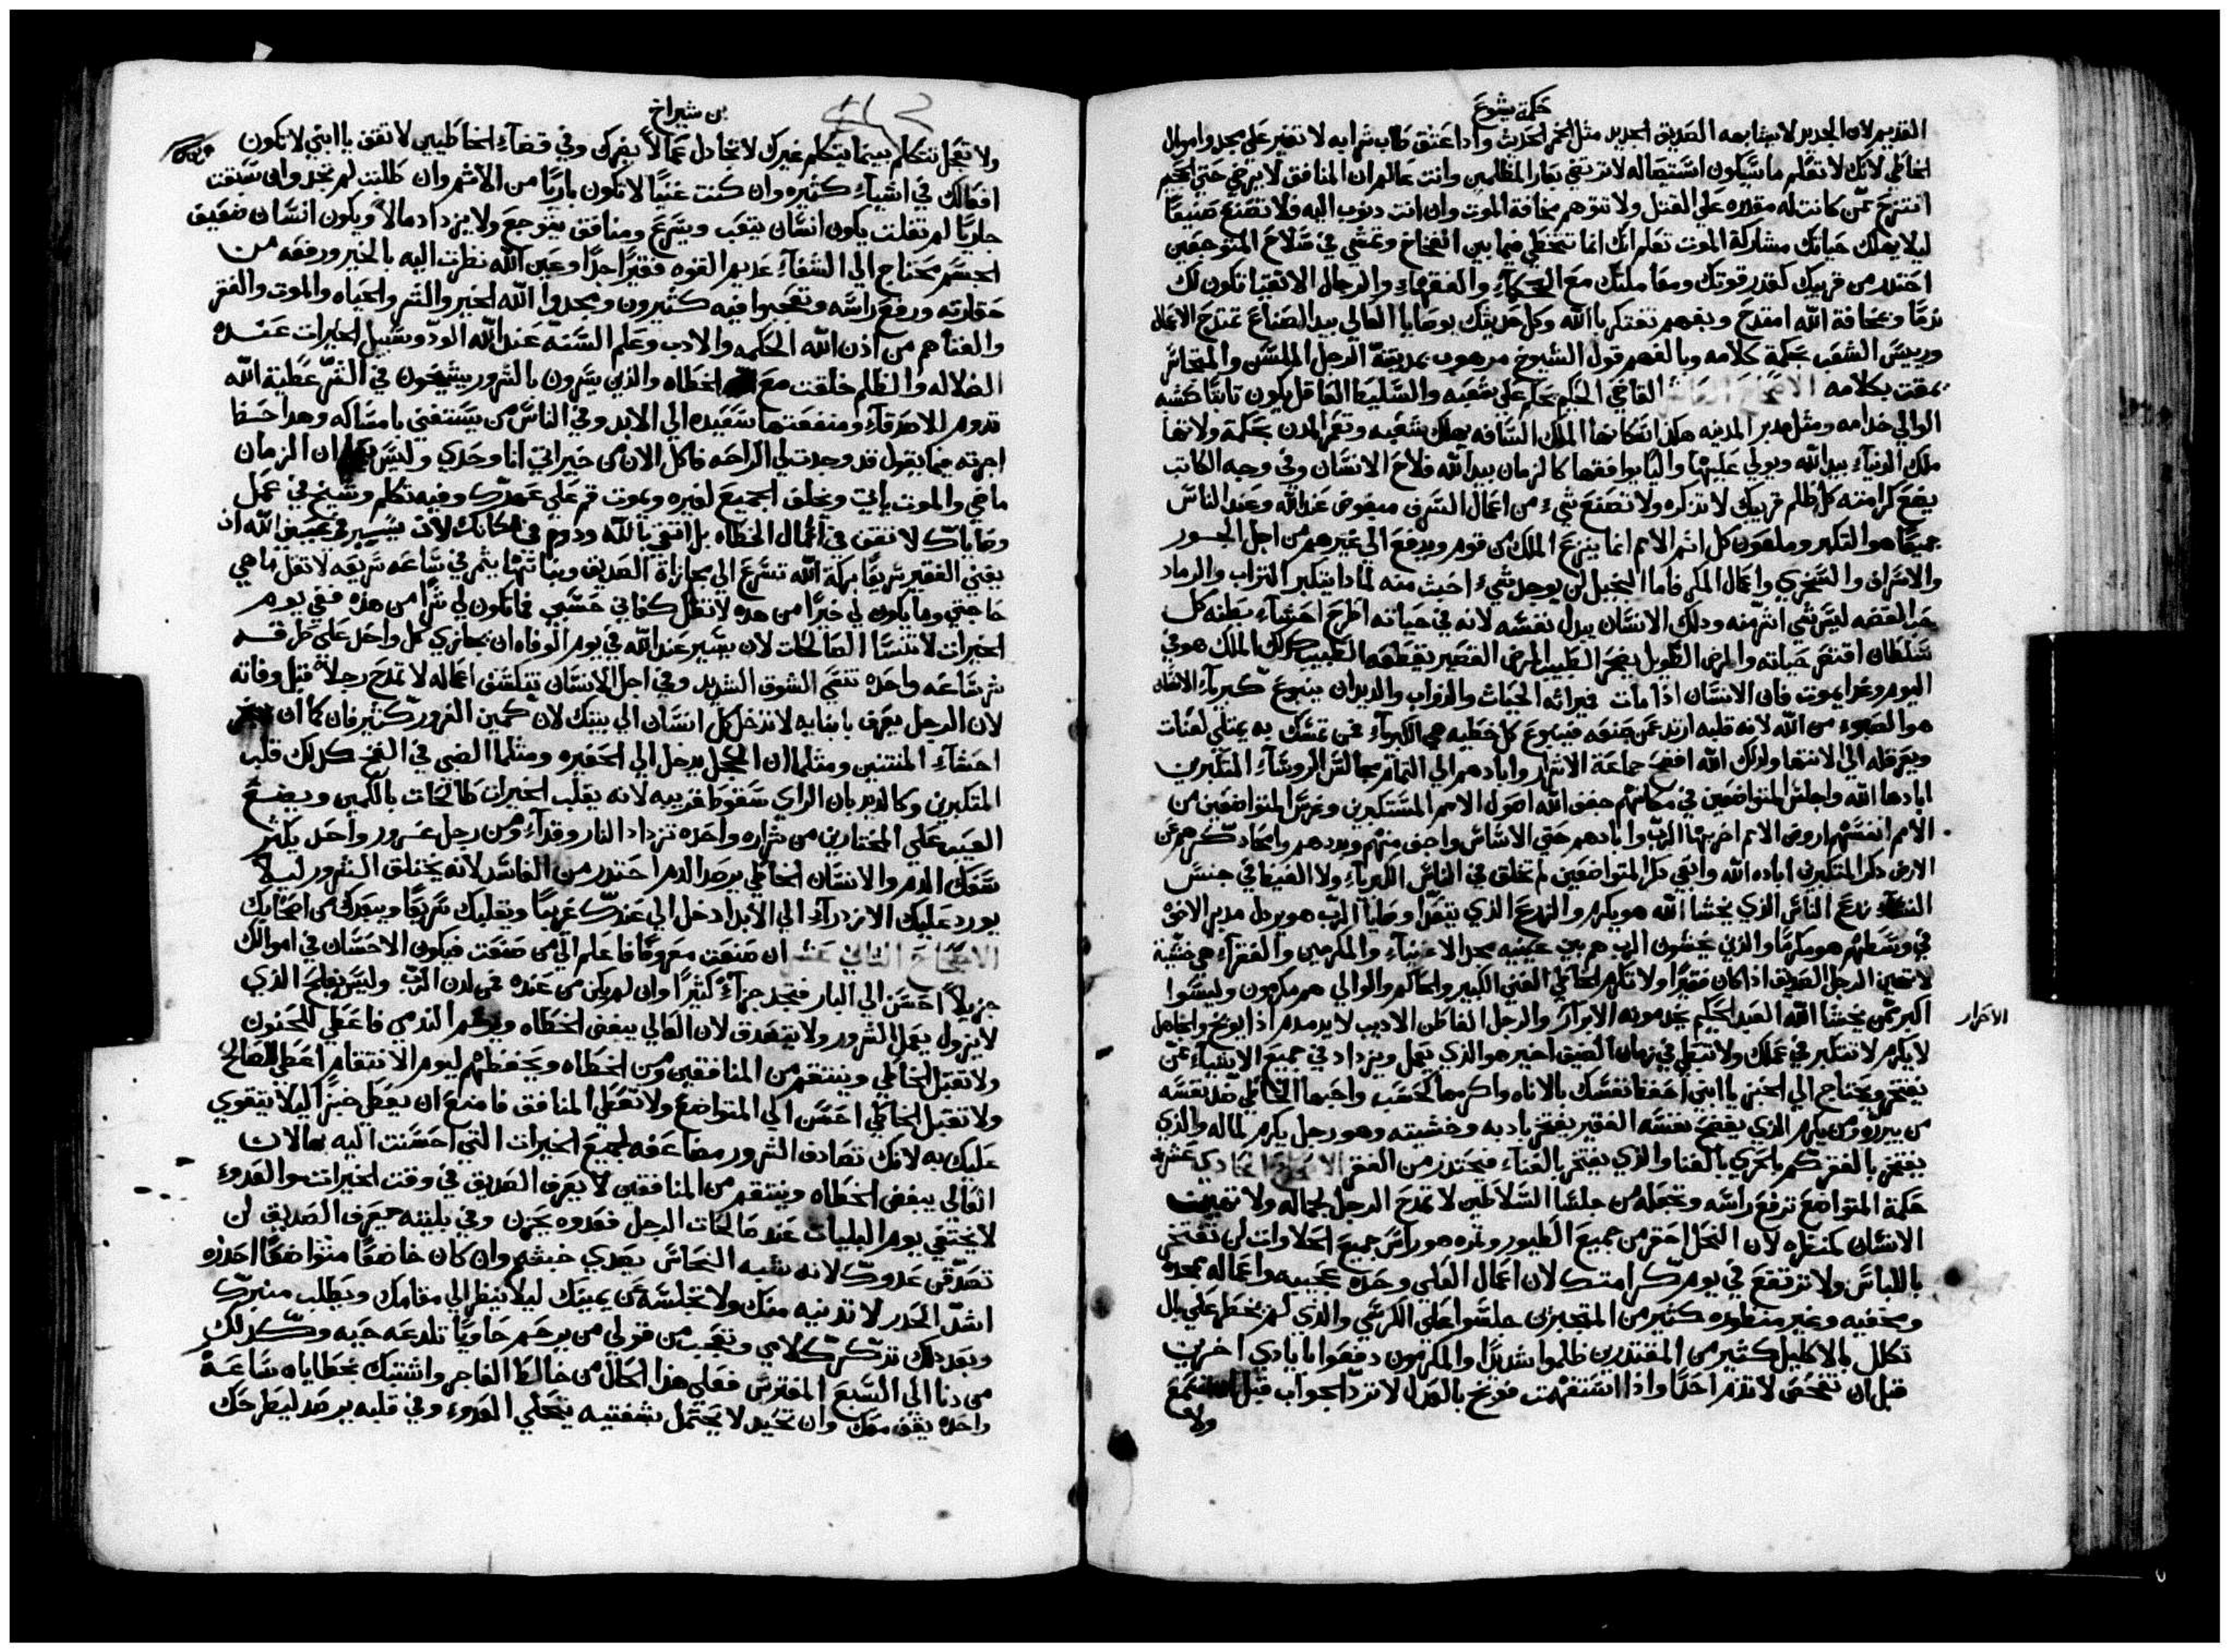 حكمة يشوع
القديم لان الجديد لا يشابهه الصديق الجديد مثل الخمر الحديث واذا عتق طاب شرابه لا تغير على مجد واموال
الخاطي لانك لا تعلم ما سيكون استيصاله لا ترتضي بعار الظالمين وانت عالم ان المنافق لا يرضي حتى الجحيم
انتزح عمن كانت له مقدره على القتل ولا تتوهم مخافة الموت وان انت دنوت اليه فلا تصنع صنيعا
ليلا يهلك حياتك مشاركة الموت تعلم انك انما تتخطي فيما بين الفخاخ وتمشي في سلاح المتوجعين
احتدر من قريبك كقدر قوتك ومعاملتك مع الحكماء والفقهاء والرجال الاتقيا تكون لك
ندما وبمخافة الله امتدح وبفهم تفتكر بالله وكل حديثك بوصايا العالي بيد الصناع تمتدح الاعمال
ورييس الشعب بحكمة كلامه وبالفهم قول الشيوخ مرهوب بمدينته الرجل الملسن والمتجاسر
يمقت بكلامه الاصحاح العاشر القاضي الحكيم يحكم على شعبه والسليط العاقل يكون ثابتا كشبه
الوالي خدامه ومثل مدبر المدينه هكذا سكانها الملك السافه يهلك شعبه وتعمر المدن بحكمة ولاتها
ملك الدنياء بيد الله ويولي عليها واليا يوافقها كالزمان بيد الله فلاح الانسان وفي وجه الكاتب
يضع كرامته كل ظلم قريبك لا تذكره ولا تصنع شيء من اعمال السرف مبغوض عند الله وعند الناس
جميعا هو التكبر وملعون كل اثم الامم انما ينزع الملك من قوم ويدفع الى غيرهم من اجل الجور
والافتراق والتخزي واعمال المكر فاما البخيل لن يوجد شيء اخبث منه لماذا يتكبر التراب والرماد
حب الفضه ليس شي اشر منه وذلك الانسان يبدل نفسه لانه في حياته اطرح احشاء بطنه كل
سلطان اقتصر حياته والمرض الطويل يضجر الطبيب المرض القصير يقطعه الطبيب كذلك الملك هو في
اليوم وغدا يموت فان الانسان اذا مات فيراثه الحيات والدواب والديدان ينبوع كبرياء الانسان
هو الصبوء من الله لانه قلبه ارتد عن صنعه فينبوع كل خطيه هي الكبرياء فمن تمسك به يمتلي لعنات
ويعرقله الى الانتها ولذلك الله افضح جماعة الاشرار وابادهم الى التمام مجالس الروساء المتكبرين
ابادها الله واجلس المتواضعين في مكانهم جفف الله اصول الامم المستكبرين وغرس المتواضعين من
الامم انفسهم اروض الامم اخربها الرب وابادهم حتى الاساس واجف منهم وبددهم واباد ذكرهم عن
الارض ذكر المتكبرين اباده الله وابقي ذكر المتواضعين لم تخلق في الناس الكبرياء ولا الغيظ في جنس
النساء نزع الناس الذي يخشا الله هو يكرم والزرع الذي يتعدا وصايا الرب هو يرذل مدبر الاخوة
في وسطهم هو مكرما والذين يخشون الرب هم بين عينيه مجد الاغنياء والمكرمين والفقراء هي خشية
لا تهين الرجل الصديق اذا كان فقيرا ولا تكرم الخاطي الغني الكبير والحاكم والوالي هم مكرمون وليسوا
اكبر ممن يخشا الله العبد الحكيم يخدمونه الابرار والرجل الفاطن الاديب لا يدمدم اذا يوبخ والجاهل
الاحرار
لا يكرم لا تتكبر في عملك ولا تبطي في زمان الضيق اخير هو الذي يعمل ويزداد في جميع الاشياء عمن
يفتخر ويحتاج الى الخبز يا ابني احفظ نفسك بالاناه واكرمها كحسب واجبها الخاطي ضد نفسه
من يبرره ومن يكرم الذي يفضح نفسه الفقير يفتخر بادبه وخشيته وهو رجل يكرم لماله والذي
يفتخر بالفقر كم بالحري بالغنا والذي يفتخر بالغناء فيحتدر من الفقر الاصحاح الحادي عشر
حكمة المتواضع ترفع راسه وتجعله من جلسا السلاطين لا تمدح الرجل لجماله ولا تهين
الانسان لمنظره لان النحل احقر من جميع الطيور وثمره هو راس جميع الحلاوات لن تفتخر
باللباس ولا ترتفع في يوم كرامتك لان اعمال العلي وحده عجيبه واعماله ممجده
ومخفيه وغير منظوره كثير من المتجبرين جلسوا على الكرسي والذي لم يخطر على بال
تكلل بالاكليل كثير من المقتدرين ظلموا شديدا والمكرمون دفعوا بايادي اخرين
قبل ان تفحص لا تذم احدا واذا استفهمت فوبخ بالعدل لا ترد الجواب قبل ان تسمع
ولا
بن شيراخ
ولا تعجل تتكلم بينما يتكلم غيرك لا تجادل عما لا يضرك وفي قضاء الخاطيين لا تقف يا ابني لا تكون
افعالك في اشياء كثيره وان كنت غنيا لا تكون باريا من الاثم وان طلبت لم تجد وان سبقت
جاريا لم تفلت يكون انسان يتعب ويسرع ومنافق يتوجع ولا يزداد مالا ويكون انسان ضعيف
الجسم محتاج الى الشفاء عديم القوه فقيرا جدا وعين الله نظرت اليه بالخير ورفعه من
حقارته ورفع راسه وتعجبوا فيه كثيرون ومجدوا الله الخير والشر والحياه والموت والفقر
والغنا هم من اذن الله الحكمه والادب وعلم السنه عند الله الود وسبيل الخيرات عنده
الضلاله والظلم خلقت مع الخطاه والذين يسرون بالشرور يشيخون في الشر عطية الله
تدوم للاصدقاء ومنفعتها سعيده الى الابد وفي الناس من يستغني بامساكه وهذا حسظ
اجرته بينما يقول قد وجدت لي الراحه فاكل الان من خيراتي انا وحدي وليس يعلم ان الزمان
ماضي والموت ياتي ويخلف الجميع لغيره ويموت قم على عهدك وفيه تكلم وشيخ في عمل
وصاياك لا تقف في اعمال الخطاه بل اتقي بالله ودوم في مكانك لان يسير في عيني الله ان
يغني الفقير سريعا بركة الله تسرع الى مجازاة الصديق وبناتها يثمر في ساعه سريعه لا تقل ما هي
حاجتي وما يكون لي خيرا من هذه لا تقل كفاني حسبي فما يكون لي شرا من هذه ففي يوم
الخيرات لا تنسا الصالحات لان يسير عند الله في يوم الوفاه ان يجازي كل واحد على طرقه
شر ساعه واحده تنسي الشوق الشديد وفي اجل الانسان تتكشف اعماله لا تمدح رجلا قبل وفاته
لان الرجل يعرف بابنايه لا تدخل كل انسان الى بيتك لان كمين الغرور كثير فان كما ان
احشاء المنتنين ومثلما ان الحجل يدخل الى الحفيره ومثلما الضبي في الفخ كذلك قلب
المتكبرين وكالديدبان الراي سقوط قريبه لانه يقلب الخيرات طالحات بالكمين ويضع
العيب على المختارين من شراره واحده تزداد النار وقداء ومن رجل غرور واحد يكثر
سفك الدم والانسان الخاطي يرصد الدم احتدر من الفاسد لانه يختلق الشرور ليلا
يورد عليك الازدراء الى الابد ادخل الى عندك غريبا ويقلبك سريعا ويبعدك من اصحابك
الاصحاح الثاني عشر ان صنعت معروفا فاعلم الى من صنعت فيكون الاحسان في اموالك
جزيلا احسن الى البار فتجد جزاء كثيرا وان لم يكن من عنده فمن لدن الرب وليس يفلح الذي
لا يزول يعمل الشرور ولا يتصدق لان العالي يبغض الخطاه ويرحم الندمي فاعطي للحنون
ولا تقبل الخاطي وينتقم من المنافقين ومن الخطاه ويحفظهم ليوم الانتقام اعطي للصالح
ولا تقبل الخاطي احسن الى المتواضع ولا تعطي المنافق فامنع ان يعطي خبزا ليلا يتقوي
عليك به لانك تصادف الشرور مضاعفه لجميع الخيرات التي احسنت اليه بها لان
العالي يبغض الخطاه وينتقم من المنافقين لا يعرف الصديق في وقت الخيرات والعدوء
لا يختفي يوم البليات عند صالحات الرجل فعدوه يحزن وفي بليته يعرف الصديق لن
تصدق عدوك لانه شبه النحاس يصدي خبثه وان كان خاضعا متواضعا احذره
اشد الحدر لا تدنيه منك ولا تجلسه عن يمينك ليلا ينظر الى مقامك ويطلب منبرك
وبعد ذلك تذكر كلامي وتعجب من قولي من يرحم حاويا تلدعه حيه وكذلك
من دنا الى السبع المفترس فعلى هذا الحال من خالط الفاجر واشتبك بخطاياه ساعة
واحده يقف معك وان تحيد لا يحتمل بشفتيه يتحلي العدوء وفي قلبه يرصد ليطرحك